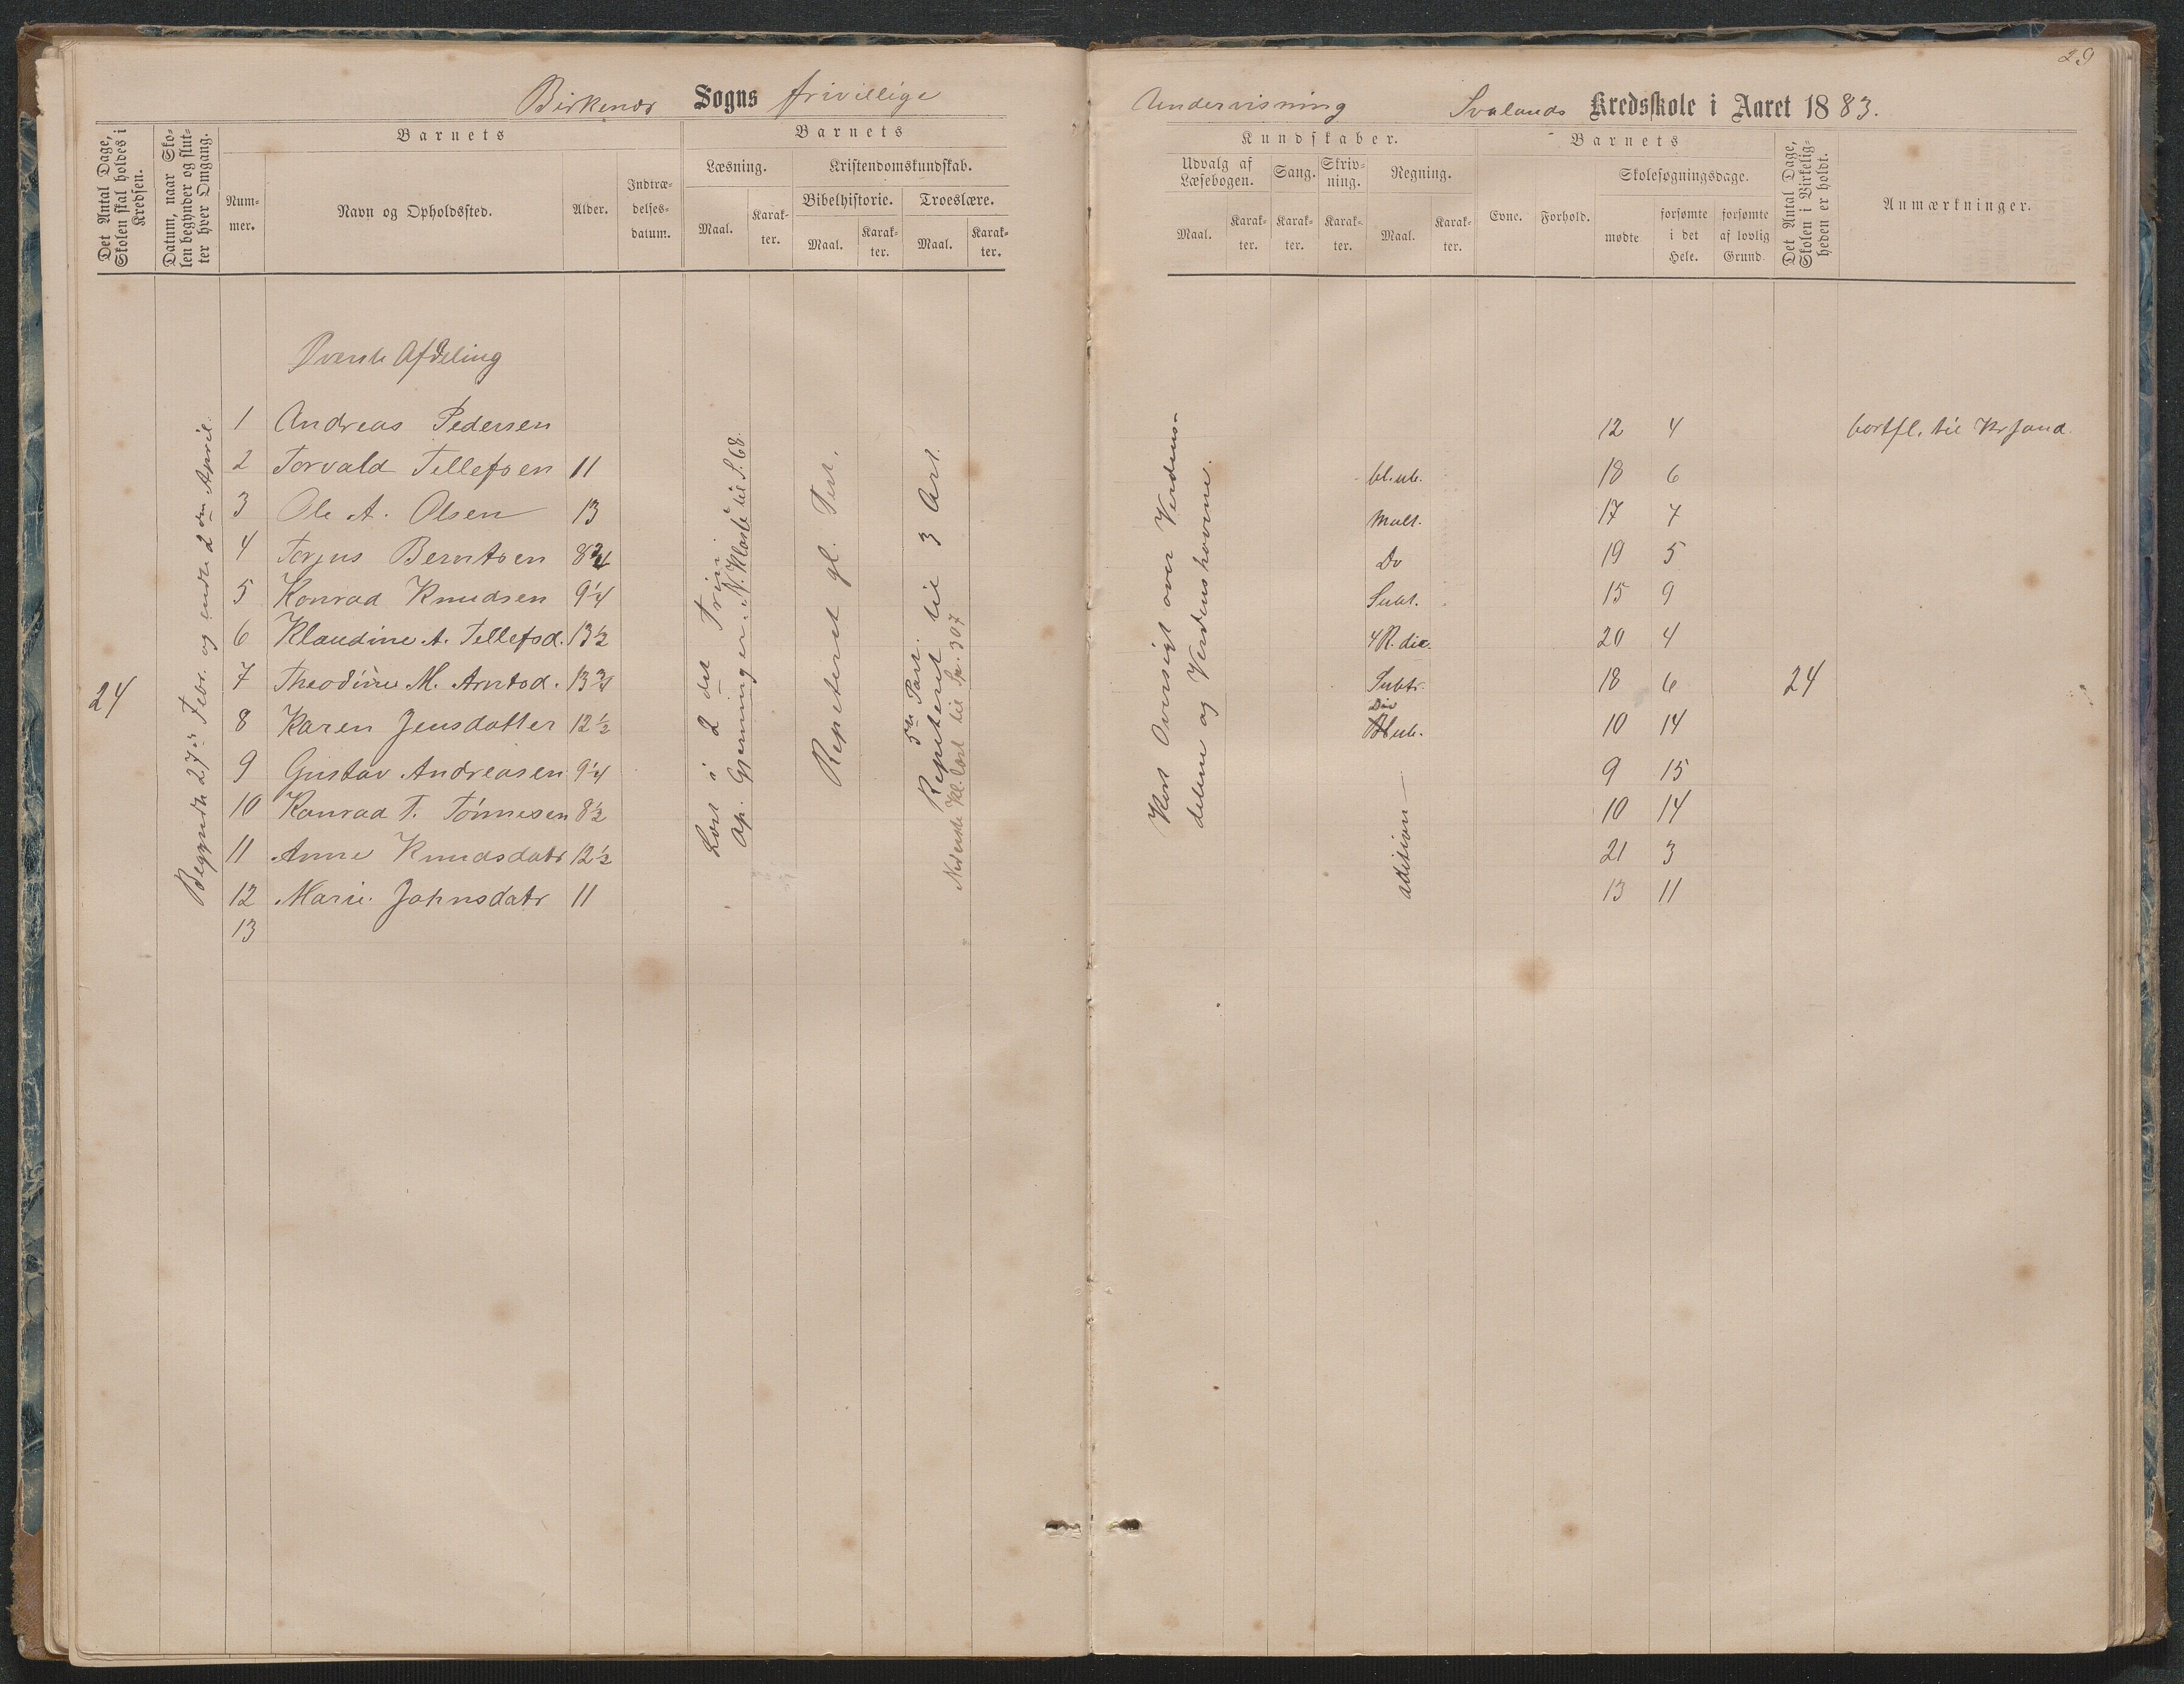 29
Birkenes Sogns frivillige Undervisning Svalands Kredsskole i Aaret 1883.
Det Antal Dage, Skolen skal holdes i Kredsen.
Datum, naar Skolen begynder og slutter hver Omgang.
Barnets
Nummer.
Navn og Opholdssted.
Alder.
Indtrædelsesdatum.
Barnets
Læsning.
Maal.
Karakter.
Kristendomskundskab.
Bibelhistorie.
Maal.
Karakter.
Troeslære.
Maal.
Karakter.
Kundskaber.
Udvalg af Læsebogen.
Maal.
Karakter.
Sang.
Karakter.
Skrivning.
Karakter.
Regning.
Maal.
Karakter.
Barnets
Evne.
Forhold.
Skolesøgningsdage.
mødte
forsømte i det Hele.
forsømte af lovlig Grund.
Det Antal Dage, Skolen i Virkeligheden er holdt.
Anmærkninger.
Øverste Afdeling
24
Begyndte 27de Febr. og endte 2den April.
1 Andreas Pedersen 12 4 bortfl. til Krsand.
2 Torvald Tellefsen 11 18 6
3 Ole A. Olsen 13 Mult. 17 7
4 Torjus Berntsen 8 3/4 Do 19 5
5 Konrad Knudsen 9 1/4 Subt. 15 9
6 Klaudine A. Tellefsd. 13 1/2 4 R. die. 20 4
7 Theodine M. Arntsd. 13 3/4 Subtr. 18 6 24
8 Karen Jensdatter 12 1/2 Div 10 14
9 Gustav Andreasen 9 1/4 9 15
10 Konrad T. Tønnesen 8 1/2 10 14
11 Anne Knudsdatr 12 1/2 21 3
12 Marie Johnsdatr 11 13 11
13
adition
Læst i 2det Trin
Op. Gjerninger. N. Klasse til S. 68.
Repeteret gl. Test.
5te Part.
Repeteret til 3 Art.
Nederste Kl. læst til Sp. 307
Kort Oversigt over Verdensdelene og Verdenshavene.